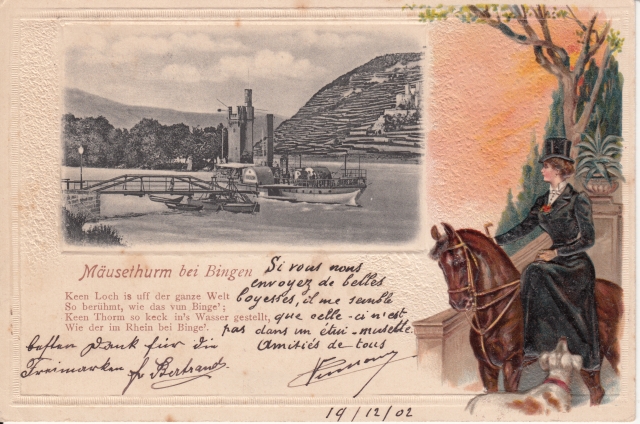 Mäusethurm bei Bingen
Keen Loch is uff der ganze Welt
So berühmt, wie das vun Binge';
Keen Thorm so keck in's Wasser gestellt,
Wie der im Rhein bei Binge'.
Si vous nous
envoyez de belles
me semble
que celle-ci n'est
pas dans un étui-musette.
Amitiés de tous
besten Dank für die
Freimarken fr Bertrand.
19/12/02